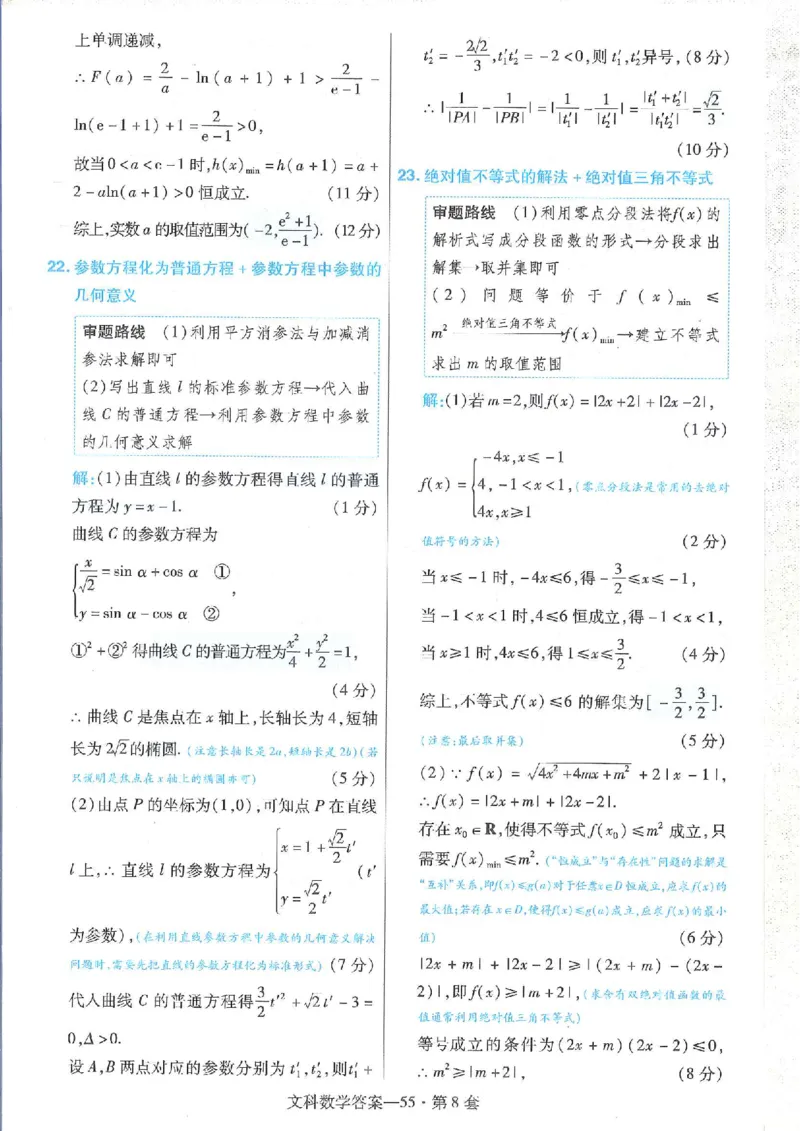 上单调递减,
∴F(a) = 2/a - ln(a+1) + 1 > 2/(e-1) -
ln(e-1+1)+1 = 2/(e-1) >0,
故当0<a<e-1时,h(x)min = h(a+1) = a+
2-aln(a+1)>0恒成立. (11分)
综上,实数a的取值范围为(-2, (e²+1)/(e-1)). (12分)
22.参数方程化为普通方程+参数方程中参数的
几何意义
审题路线 (1)利用平方消参法与加减消
参法求解即可
(2)写出直线l的标准参数方程→代入曲
线C的普通方程→利用参数方程中参数
的几何意义求解
解:(1)由直线l的参数方程得直线l的普通
方程为y=x-1. (1分)
曲线C的参数方程为
{ x/√2 = sin α + cos α ①
y = sin α - cos α ② ,
①²+②²得曲线C的普通方程为x²/4 + y²/2 = 1,
(4分)
∴曲线C是焦点在x轴上,长轴长为4,短轴
长为2√2的椭圆.(注意长轴长是2a,短轴长是2b)(若
只说明是焦点在x轴上的椭圆亦可) (5分)
(2)由点P的坐标为(1,0),可知点P在直线
l上,∴直线l的参数方程为{ x=1+(√2/2)t′ y=(√2/2)t′ (t′
为参数),(在利用直线参数方程中参数的几何意义解决
问题时,需要先把直线的参数方程化为标准形式) (7分)
代入曲线C的普通方程得(3/2)t′² + √2t′ - 3 =
0,Δ>0.
设A,B两点对应的参数分别为t′₁,t′₂,则t′₁+
t′₂ = -2√2/3, t′₁t′₂ = -2<0,则t′₁,t′₂异号,(8分)
∴|1/|PA| - 1/|PB|| = |1/|t′₁| - 1/|t′₂|| = |t′₁+t′₂|/|t′₁t′₂| = √2/3.
(10分)
23.绝对值不等式的解法+绝对值三角不等式
审题路线 (1)利用零点分段法将f(x)的
解析式写成分段函数的形式→分段求出
解集→取并集即可
(2)问题等价于f(x)min ≤
m² 绝对值三角不等式→f(x)min→建立不等式
求出m的取值范围
解:(1)若m=2,则f(x)=|2x+2|+|2x-2|,
(1分)
f(x) = { -4x,x≤-1
4,-1<x<1,(零点分段法是常用的去绝对
4x,x≥1
值符号的方法) (2分)
当x≤-1时,-4x≤6,得-3/2≤x≤-1,
当-1<x<1时,4≤6恒成立,得-1<x<1,
当x≥1时,4x≤6,得1≤x≤3/2. (4分)
综上,不等式f(x)≤6的解集为[-3/2, 3/2].
(注意:最后取并集) (5分)
(2)∵f(x) = √(4x²+4mx+m²) + 2|x-1|,
∴f(x) = |2x+m| + |2x-2|.
存在x₀∈R,使得不等式f(x₀)≤m²成立,只
需要f(x)min≤m².("恒成立"与"存在性"问题的求解是
"互补"关系,即f(x)≤g(a)对于任意x∈D恒成立,应求f(x)的
最大值;若存在x∈D,使得f(x)≤g(a)成立,应求f(x)的最小
值) (6分)
|2x+m| + |2x-2| ≥ |(2x+m) - (2x-
2)|,即f(x)≥|m+2|,(求含有双绝对值函数的最
值通常利用绝对值三角不等式)
等号成立的条件为(2x+m)(2x-2)≤0,
∴m²≥|m+2|, (8分)
文科数学答案—55·第8套